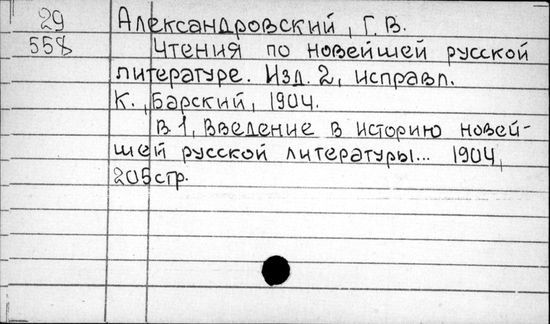 29 Александровский, Г. В.
558 Чтения по новейшей русской
литературе. Изд. 2, исправл.
К., Барский, 1904.
В 1, Введение в историю новей-
шей русской литературы... 1904,
205 стр.